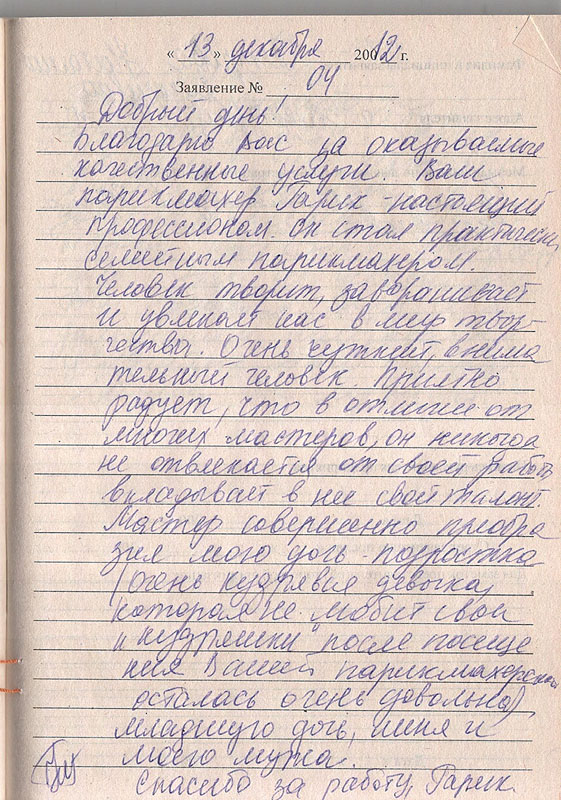 « 13 » декабря 20012 г.
Заявление № 04
Добрый день!
Благодарю Вас за оказываемые
качественные услуги. Ваш
парикмахер Гарик - настоящий
профессионал. Он стал практически
семейным парикмахером.
Человек творит, завораживает
и увлекает нас в мир твор-
чества. Очень чуткий, внима
тельный человек. Приятно
радует, что в отличие от
многих мастеров, он никогда
не отвлекается от своей работы,
вкладывает в нее свой талант.
Мастер совершенно преобра
зил мою дочь - подростка
(очень кудрявая девочка,
которая не любит свои
"кудряшки" после посеще
ния Вашей парикмахерской
осталась очень довольна),
младшую дочь, меня и
моего мужа.
Спасибо за работу, Гарик.